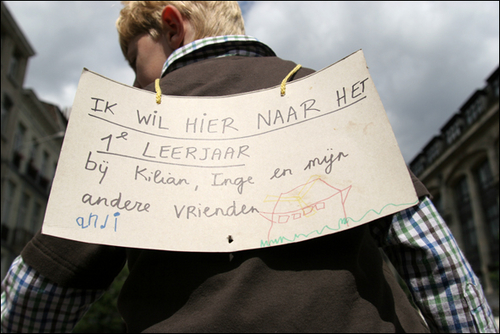 IK WIL HIER NAAR HET
1e LEERJAAR
bij Kilian, Inge en mijn
andere vrienden